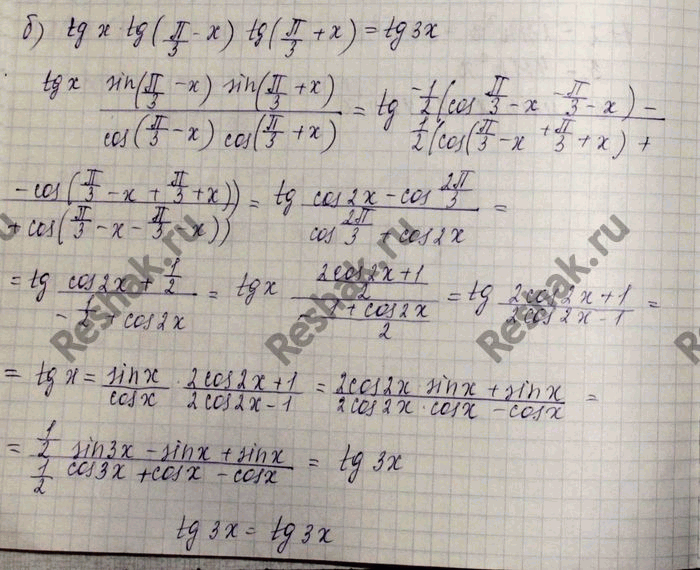 б) tg x · tg(π/3 - x) tg(π/3 + x) = tg 3x
tg x sin(π/3 - x) sin(π/3 + x) / cos(π/3 - x) cos(π/3 + x) = tg -1/2(cos π/3 - x - π/3 - x) - / 1/2(cos(π/3 - x + π/3 + x) +
- cos(π/3 - x + π/3 + x)) / + cos(π/3 - x - π/3 - x)) = tg cos2x - cos 2π/3 / cos 2π/3 + cos2x =
= tg cos2x + 1/2 / - 1/2 + cos2x = tg x 2cos2x+1/2 / -1+cos2x/2 = tg 2cos2x+1 / 2cos2x-1 =
= tg x = sinx/cosx · 2cos2x+1 / 2cos2x-1 = 2cos2x sinx + sinx / 2cos2x · cosx - cosx =
= 1/2 sin3x - sinx + sinx / 1/2 cos3x + cosx - cosx = tg 3x
tg 3x = tg 3x
Reshak.ru
Reshak.ru
Reshak.ru